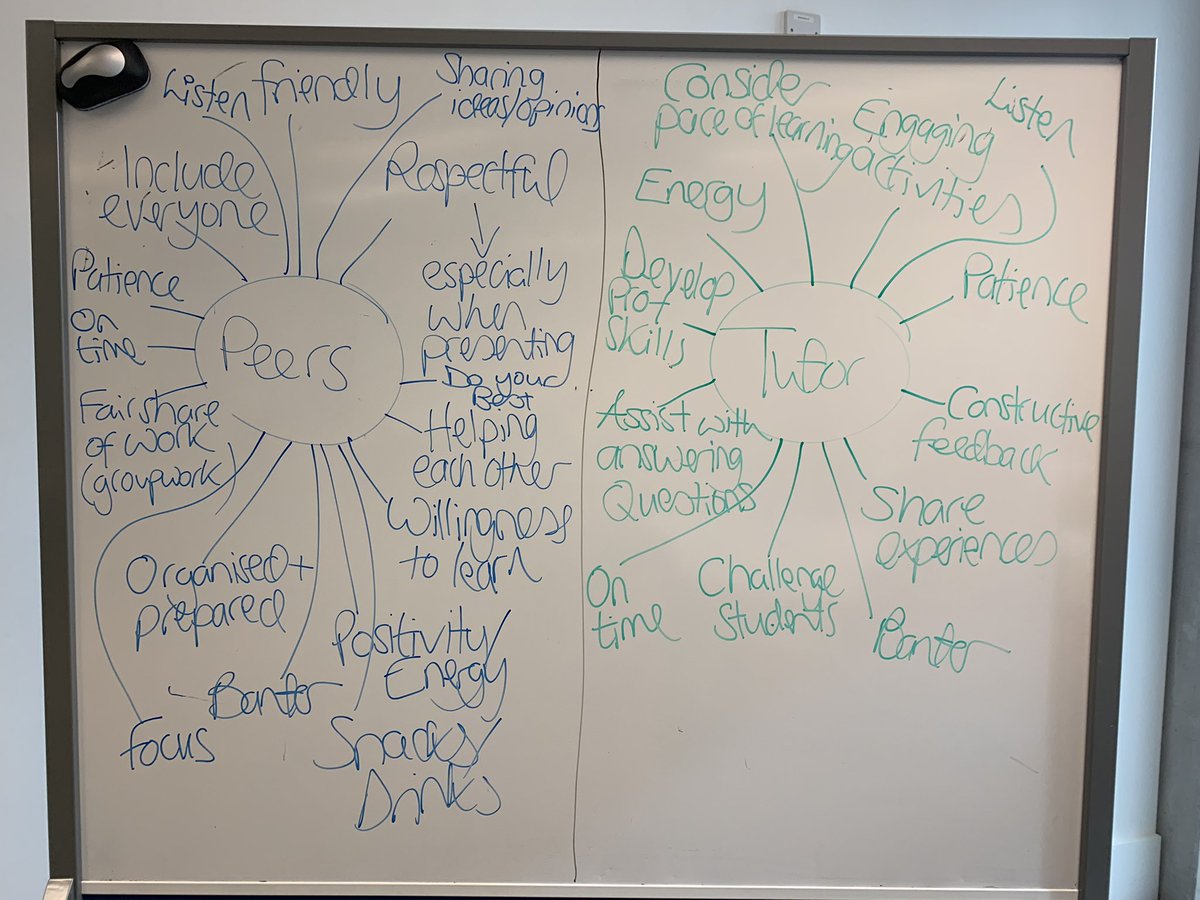 Listen
friendly
Sharing
ideas/opinions
Include
everyone
Respectful
especially
when
presenting
Patience
On
time
Peers
Do your
Best
Fair share
of work
(groupwork)
Helping
each other
Willingness
to learn
Organised +
prepared
Positivity/
Energy
Banter
focus
Snacks/
Drinks
Consider
pace of learning
Engaging
activities
Listen
Energy
Patience
Develop
skills
Tutor
Constructive
feedback
Assist with
answering
Questions
Share
experiences
On
time
Challenge
students
Banter